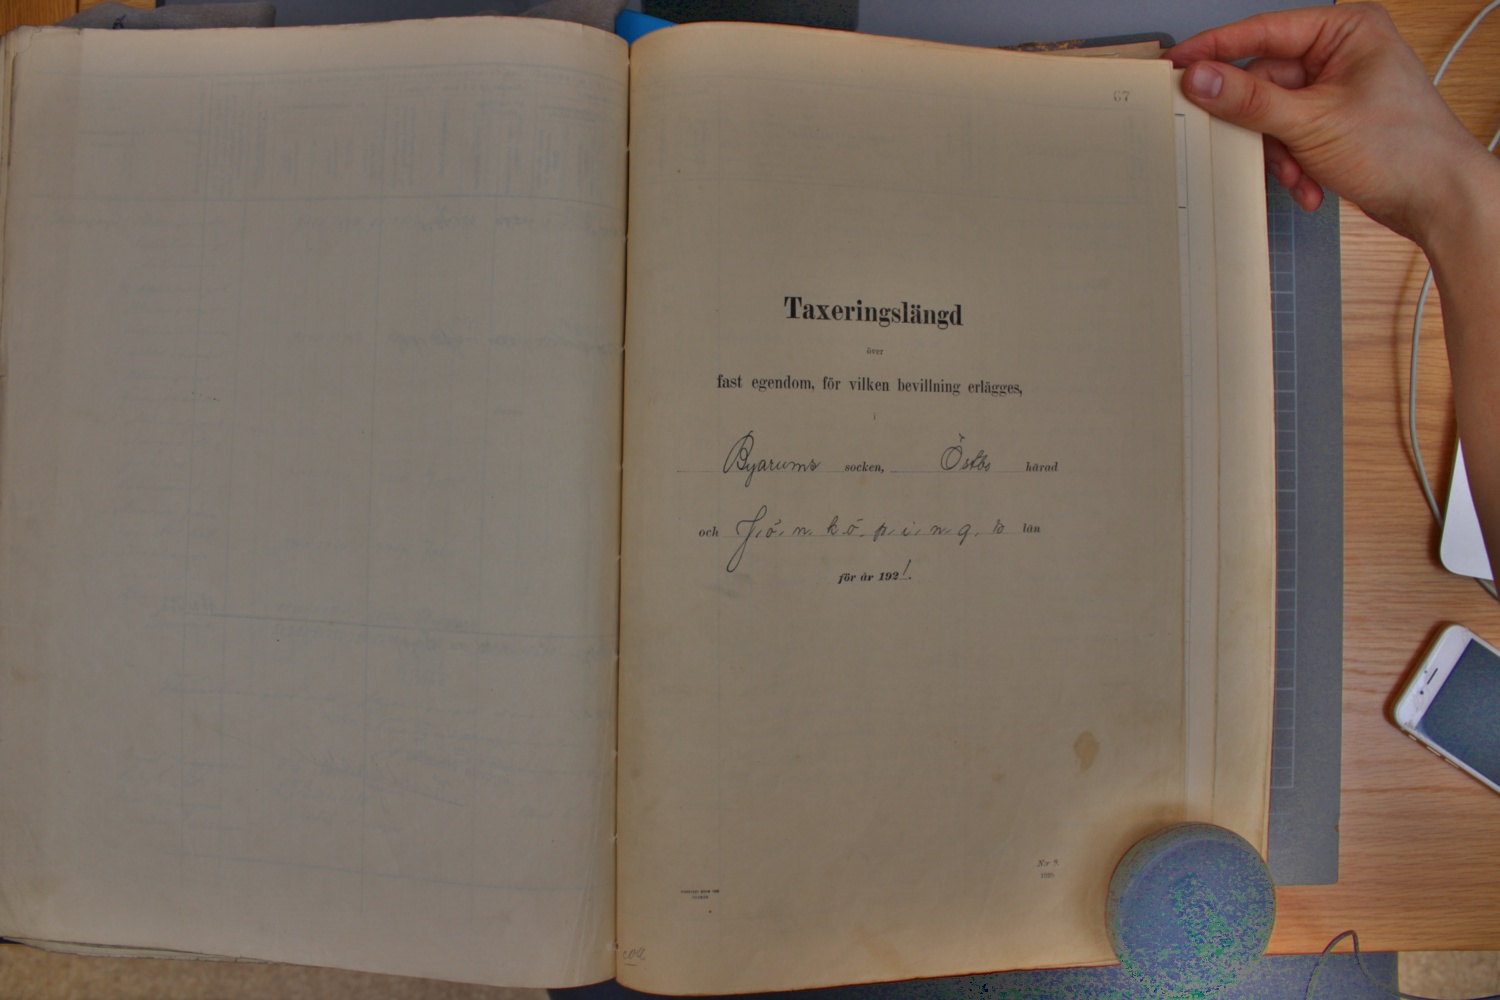 67
Taxeringslängd
över
fast egendom, för vilken bevillning erlägges,
i
Byarums socken, Östbo härad
och Jönköpings län
för år 1921.
Nr 9.